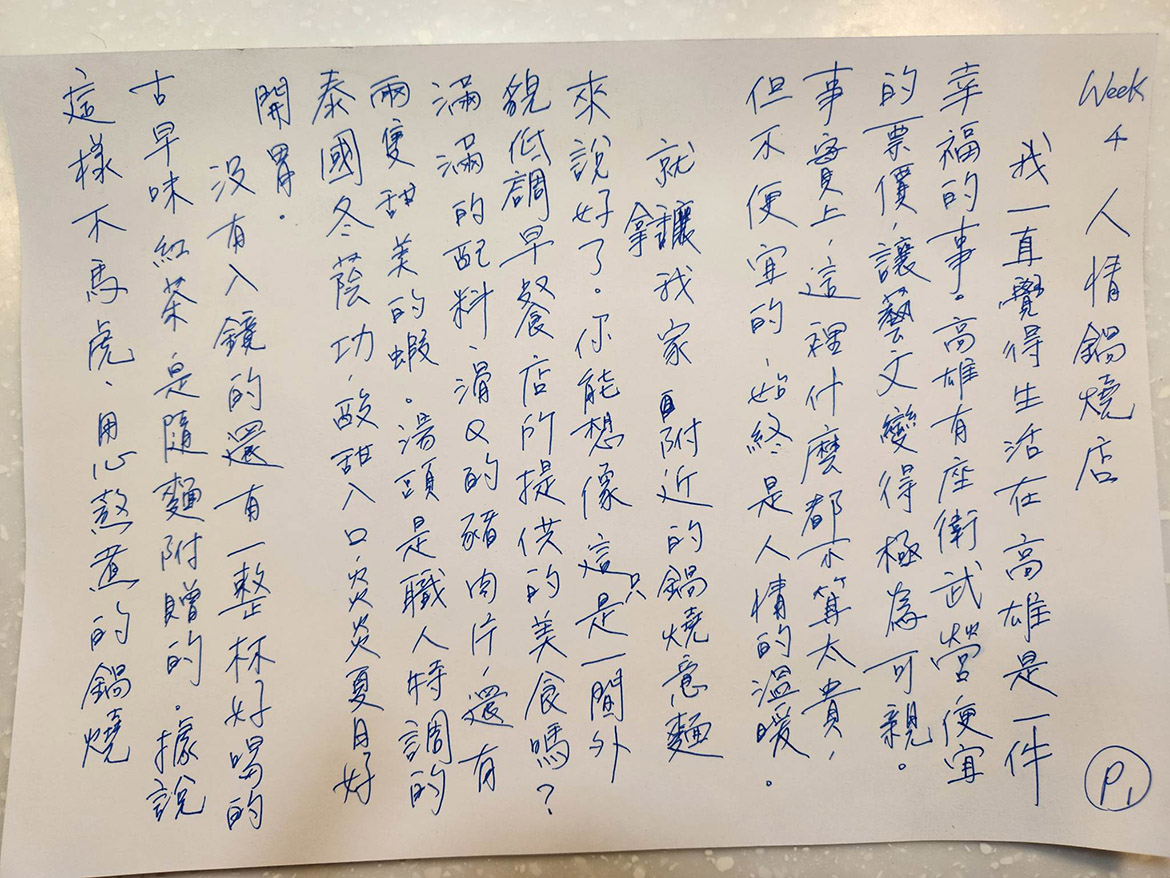 Week 4 人情鍋燒店
我一直覺得生活在高雄是一件
幸福的事。高雄有座衛武營,便宜
的票價,讓藝文變得極為可親。
事實上,這裡什麼都不算太貴,
但不便宜的,始終是人情的溫暖。
就拿我家附近的鍋燒意麵
來說好了。你能想像這只是一間外
貌低調早餐店所提供的美食嗎?
滿滿的配料、滑Q的豬肉片,還有
兩隻甜美的蝦。湯頭是職人特調的
泰國冬蔭功,酸甜入口,炎炎夏日好
開胃。
沒有入鏡的還有一整杯好喝的
古早味紅茶,是隨麵附贈的。據說
這樣不馬虎、用心熬煮的鍋燒
P1